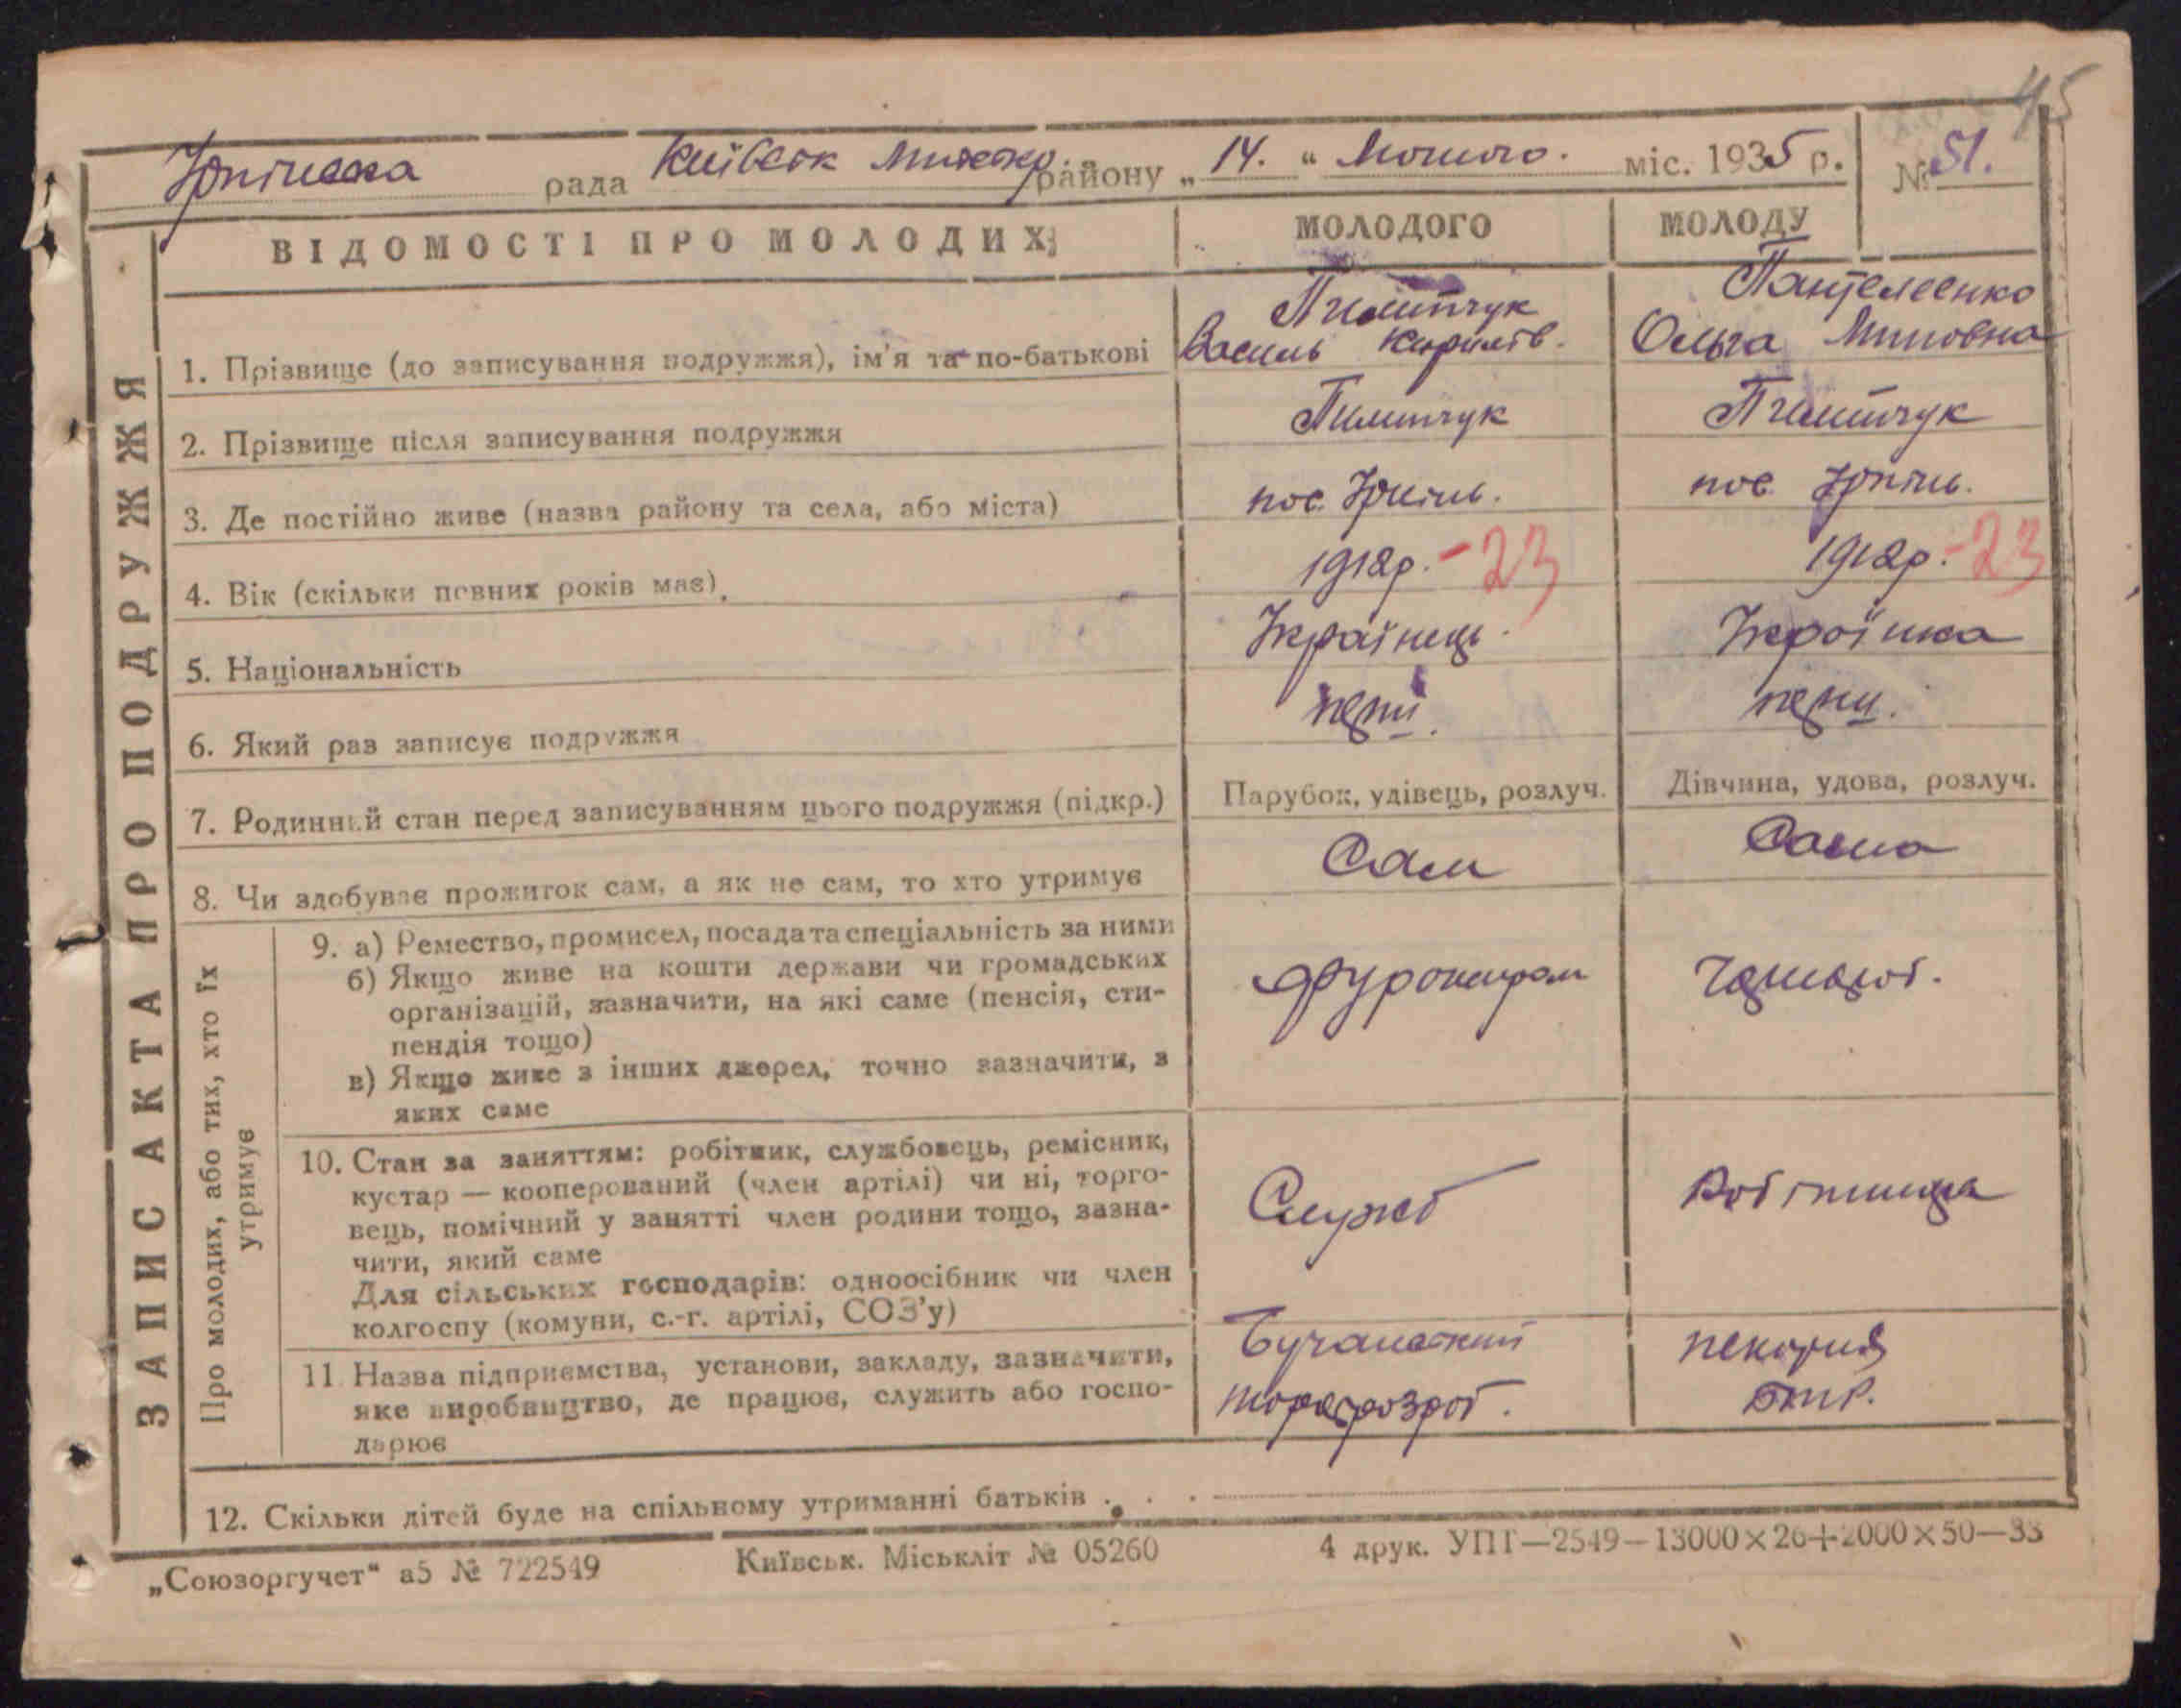 45
Ірпінська рада Київськ району „14.“ Лютого. міс. 1935 р. № 51.
ВІДОМОСТІ ПРО МОЛОДИХ
МОЛОДОГО
МОЛОДУ
ЗАПИС АКТА ПРО ПОДРУЖЖЯ
1. Прізвище (до записування подружжя), ім'я та по-батькові
Пилипчук
Василь Кирилів.
Пантелеенко
Ольга
2. Прізвище після записування подружжя
Пилипчук
Пилипчук
3. Де постійно живе (назва району та села, або міста)
пос. Ірпінь.
пос. Ірпінь.
4. Вік (скільки повних років має)
1912р. - 23
1912р. - 23
5. Національність
Українець
Українка
6. Який раз записує подружжя
перш.
перш.
7. Родинний стан перед записуванням цього подружжя (підкр.)
Парубок, удівець, розлуч.
Дівчина, удова, розлуч.
8. Чи здобуває прожиток сам, а як не сам, то хто утримує
Сам
Сама
Про молодих, або тих, хто їх утримує
9. а) Ремество, промисел, посада та спеціальність за ними
б) Якщо живе на кошти держави чи громадських
організацій, зазначити, на які саме (пенсія, сти-
пендія тощо)
в) Якщо живе з інших джерел, точно зазначити, з
яких саме
Чорнороб.
10. Стан за заняттям: робітник, службовець, ремісник,
кустар — кооперований (член артілі) чи ні, торго-
вець, помічний у занятті член родини тощо, зазна-
чити, який саме
Для сільських господарів: одноосібник чи член
колгоспу (комуни, с.-г. артілі, СОЗ'у)
Служб
Робітниця
11. Назва підприємства, установи, закладу, зазначити,
яке виробництво, де працює, служить або госпо-
дарює
Бучанський
торфорозроб.
пекарня
12. Скільки дітей буде на спільному утриманні батьків . . .
„Союзоргучет“ а5 № 722549
Київськ. Міськліт № 05260
4 друк. УПТ—2549—13000×26+2000×50—33